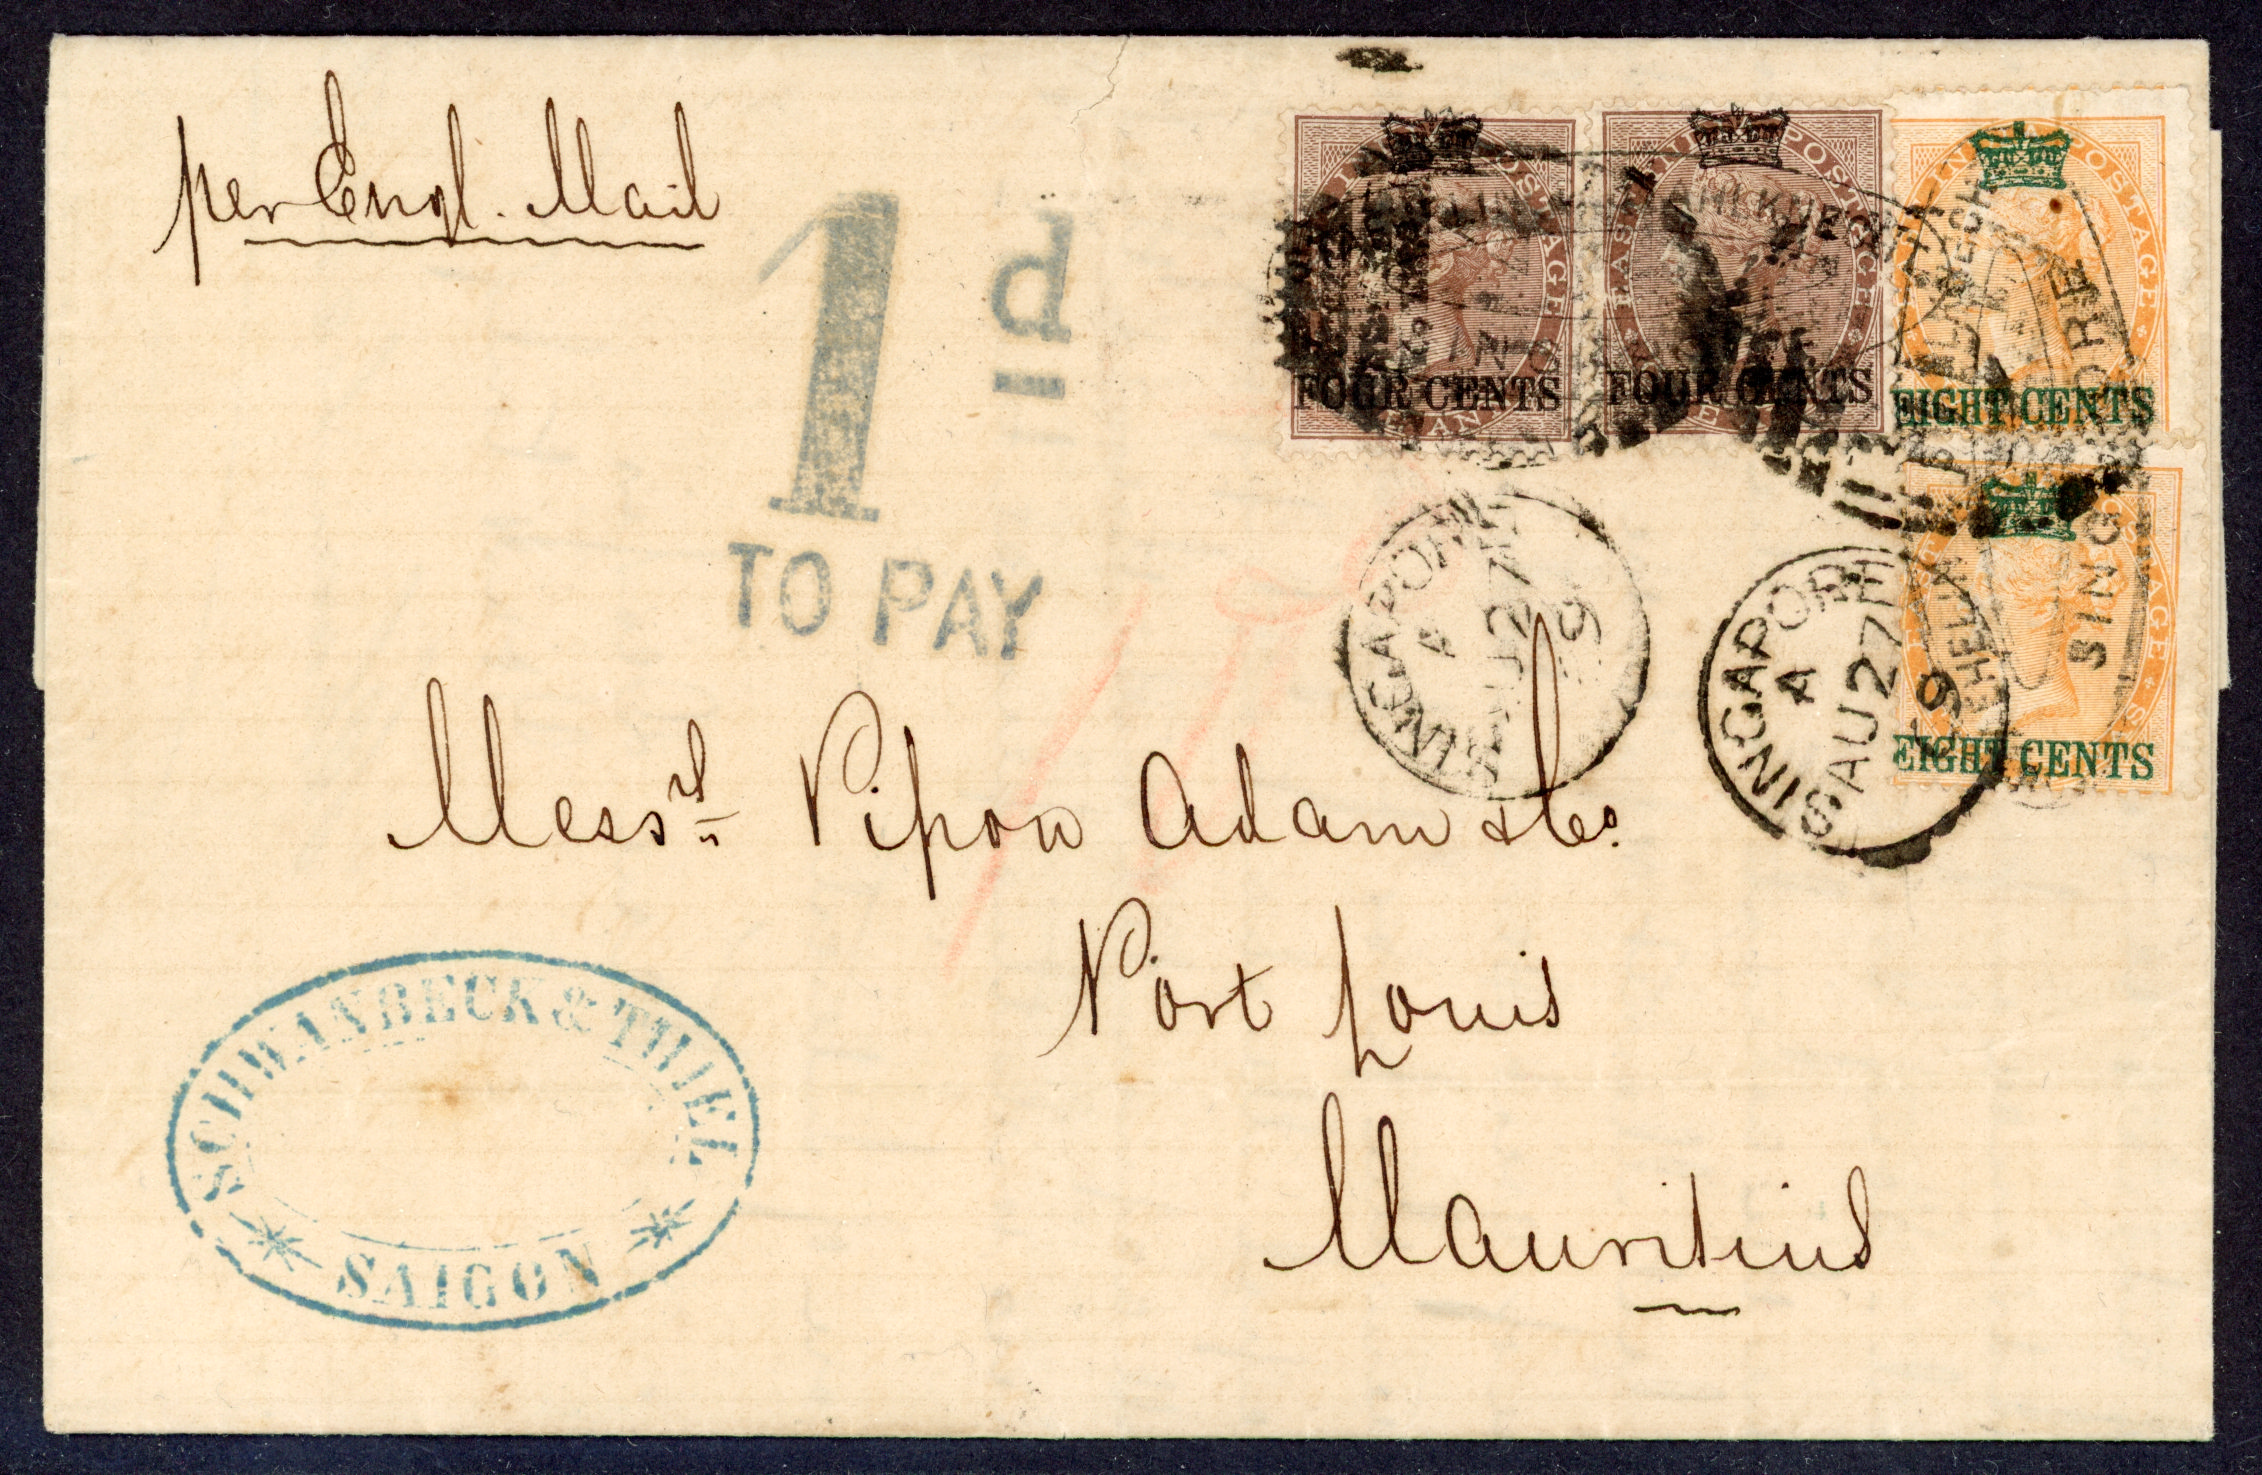 per Engl. Mail
1d
TO PAY
FOUR CENTS
FOUR CENTS
EIGHT CENTS
EIGHT CENTS
INDIA POSTAGE
EAST INDIA POSTAGE
SINGAPORE
A
AU 27
69
SINGAPORE
A
AU 27
69
SINGAPORE
Messrs Pipon Adam & Co.
Port Louis
Mauritius
SCHWANBECK & THIEL
SAIGON